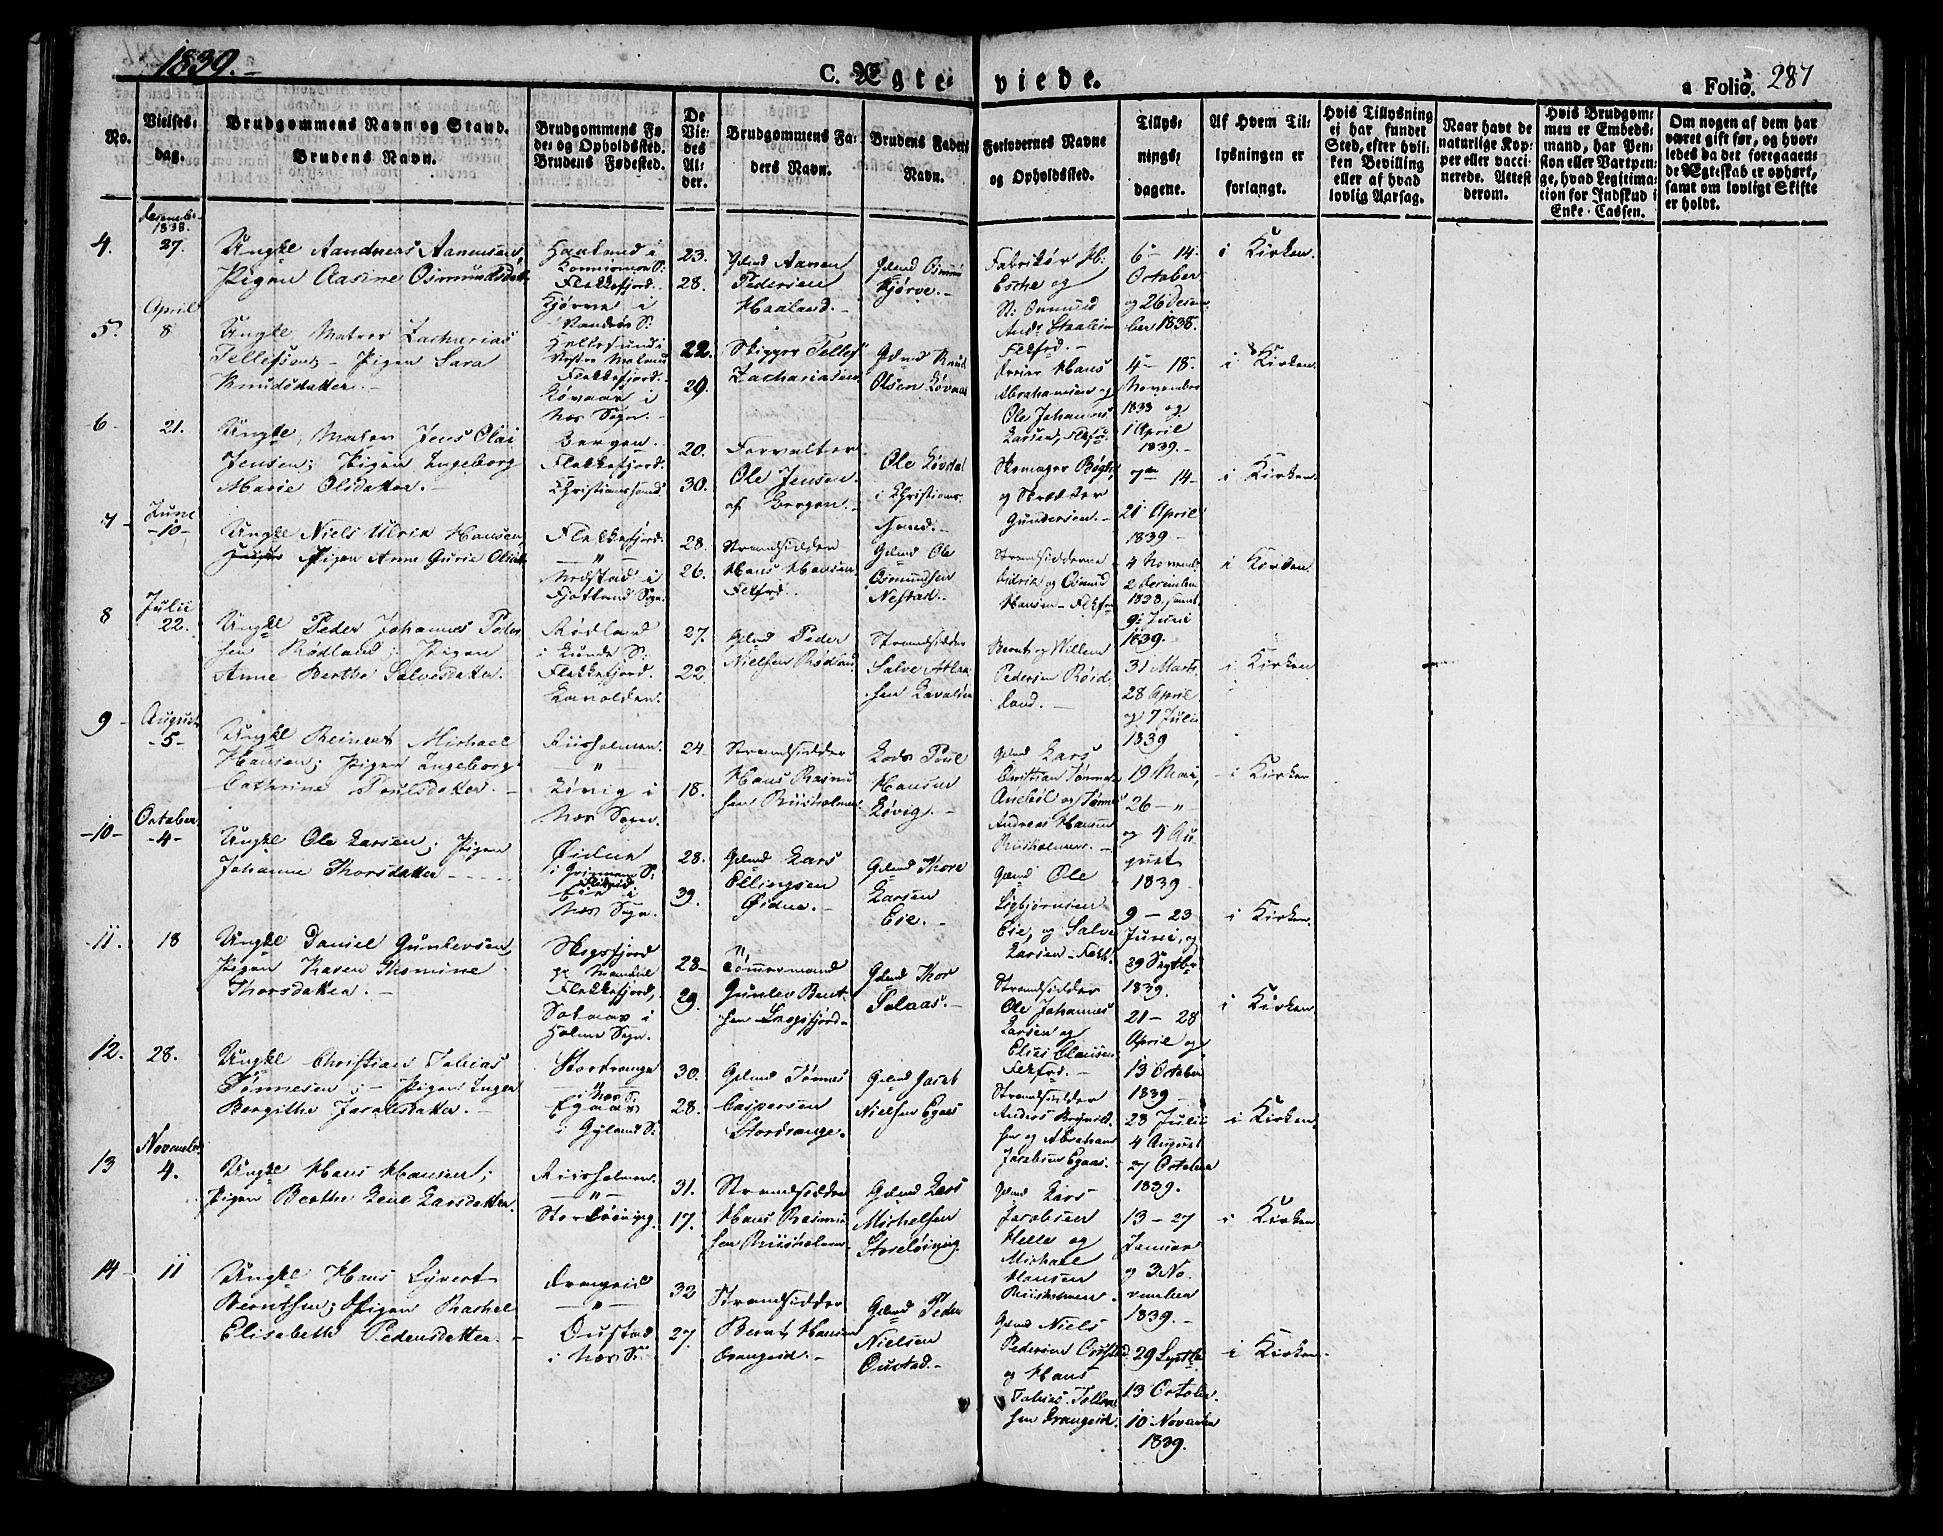 1839.
C. Ægteviede.
a Folio. 287
No.
Vielses-
dag.
Brudgommens Navn og Stand.
Brudens Navn.
Brudgommens Fø
de- og Opholdssted.
Brudens Fødested.
De
Vie-
des
Al-
der.
Brudgommens Fa-
ders Navn.
Brudens Faders
Navn.
Forlovernes Navne
og Opholdssted.
Tillys-
nings-
dagene.
Af Hvem Til-
lysningen er
forlangt.
Hvis Tillysning
ei har fundet
Sted, efter hvil-
ken Bevilling
eller af hvad
lovlig Aarsag.
Naar havt de
naturlige Kop-
per eller vacci-
nerede. Attest
derom.
Hvis Brudgom-
men er Embeds-
mand, har Pen-
sion eller Vartpen-
ge, hvad Legitima-
tion for Indskud i
Enke-Cassen.
Om nogen af dem har
været gift før, og hvor-
ledes da det foregaaen-
de Ægteskab er ophørt,
samt om lovligt Skifte
er holdt.
4.
Decembr
1838.
27.
Ungkl Aandreas Aanensen
Pigen Aasine Osmundsdatt
Haaland i
Flekkefjord.
Kjørve i
23.
28.
Gdmd Aanen
Pedersen
Haaland.
Gdmd Osmund
Kjørve.
Fabrikør
Esche og
St: Osmund
Flkfrd.
6 - 14
October
og 26 Decem
ber 1838.
i Kirken
5.
April
8
Ungkl Matros Zacharias
Tellefsen - Pigen Sara
Knudsdatter.
Hellesund i
Flekkefjord.
Løvaas i
Næs Sogn.
22.
29.
Skipper Tellef
Zachariasen
Gdmd Knud
Olsen Løvaas
Hans
Abrahamsen og
Ole Johannes
Larsen, Flkfrd
4 - 18.
November
1838 og
1 April
1839.
i Kirken.
6
21.
Ungkl, Matros Jens Olai
Jensen; Pigen Ingeborg
Marie Olsdatter.
Bergen.
Flekkefjord.
Christianssand.
20.
30.
Forvalter
Ole Jensen
af Bergen.
Ole Løvdal
i Christians-
sand.
Skomager Bøgh
og Skrædder
Gundersen.
7de 14
21 April
1839
i Kirken.
7
Juni
10
Ungkl Niels Ulrik Hansen
Pigen Anne Gurie Olsdtt
Flekkefjord.
"
Nedstad i
Fjotland Sogn.
28.
26.
Strandsidder
Hans Hansen
Flkfrd.
Gdmd Ole
Osmundsen
Nestad.
Strandsidderne
Didrik og Osmund
Hansen - Flkfrd
4 Novemb
2 December
1838, samt
9: Juni
1839.
i Kirken
8
Julii
22.
Ungkl Peder Johannes Peder
sen Rødland; Pigen
Anne Berthe Salvesdatter.
Rødland
i Lunde S:
Flekkefjord.
Lavolden.
27.
22.
Gdmd Peder
Nielsen Rødland
Strandsidder
Salve Atlak
sen Lavolden
Bernt og Willem
Pedersen Rød
land.
31 Marts
28 April
og 7 Julii
1839
i Kirken
9
August
5
Ungkl Reinert Michael
Hansen; Pigen Ingeborg
Cathrine Poulsdatter.
Riisholmen.
"
Løvig i
Næs Sogn.
24
18.
Strandsidder
Hans Rasmu
sen Riisholmen
Lods Poul
Hansen
Løvig.
Gdmd Lars
Christian Tønnes
og Tønnes
Andreas Hansen
Riisholmen.
19 Mai,
26 - "
og 4 Au
gust
1839
i Kirken
10
October
4
Ungkl Ole Larsen; Pigen
Johanne Thorsdatter
Øidne
Eie i
Næs Sogn.
28.
39.
Gdmd Lars
Ellingsen
Øidne.
Gdmd Thore
Larsen
Eie.
Gdmd Ole
Sigbjørnsen
Eie, og Salve
Larsen - Flkf.
9 - 23
Juni, og
29 Septbr
1839.
i Kirken.
11.
18
Ungkl Daniel Gunlevsen,
Pigen Karen Thomine
Thorsdatter.
Skogsfjord
Flekkefjord,
i
Holme Sogn.
28
29.
Tømmermand
Gunlev Bent
sen Skogsfjord
Gdmd Thor
Strandsidder
Ole Johannes
Larsen og
Elias Clausen
Flkfrd.
21 - 28
April og
13 October
1839
i Kirken.
12.
28.
Ungkl Christian Tobias
Tønnesen; - Pigen Inger
Bergithe Jacobsdatter.
Stordrange
i Næs S:
Egaas
i Gyland S:
30.
28.
Gdmd Tønnes
Caspersen
Stordrange.
Gdmd Jacob
Nielsen Egaas
Strandsidder
Anders
sen og Abraham
Jacobsen Egaas.
28 Julii
4 August
27 October
1839.
i Kirken.
13
November
4.
Ungkl Hans Hansen;
Pigen Berthe Lene Larsdatter.
Riisholmen.
"
Storløining.
31.
17.
Strandsidder
Hans Rasmu
sen Riisholmen
Gdmd Lars
Michelsen
Storeløining.
Gdmd Lars
Jacobsen
Helle og
Michael
Hansen
Riisholmen.
13 - 27
Januar
og 3 No
vember
1839.
i Kirken.
14
11
Ungkl Hans Syvert
Berntsen; Pigen Rachel
Elisabeth Pedersdatter.
Drangeid
"
Oustad
i Næs S:
32
27.
Strandsidder
Bernt Hansen
Drangeid.
Gdmd Peder
Nielsen
Oustad.
Gdmd Niels
Pedersen Oustad
og Hans
Tobias Tolle
sen Drangeid.
29 Septbr
13 October
10 November
1839.
i Kirken.